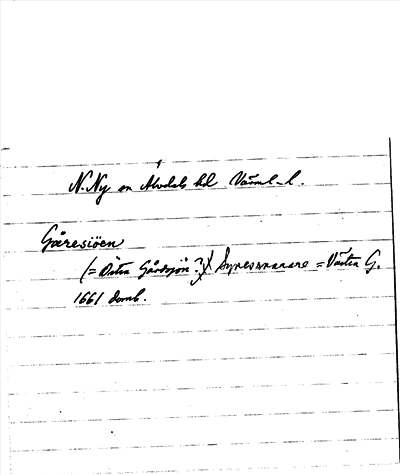 N. Ny sn Älvdals hd Värml. l.
Gåresiöen
(= Östra Gårdsjön?) Synes snarare = Västra G.
1661 domb.